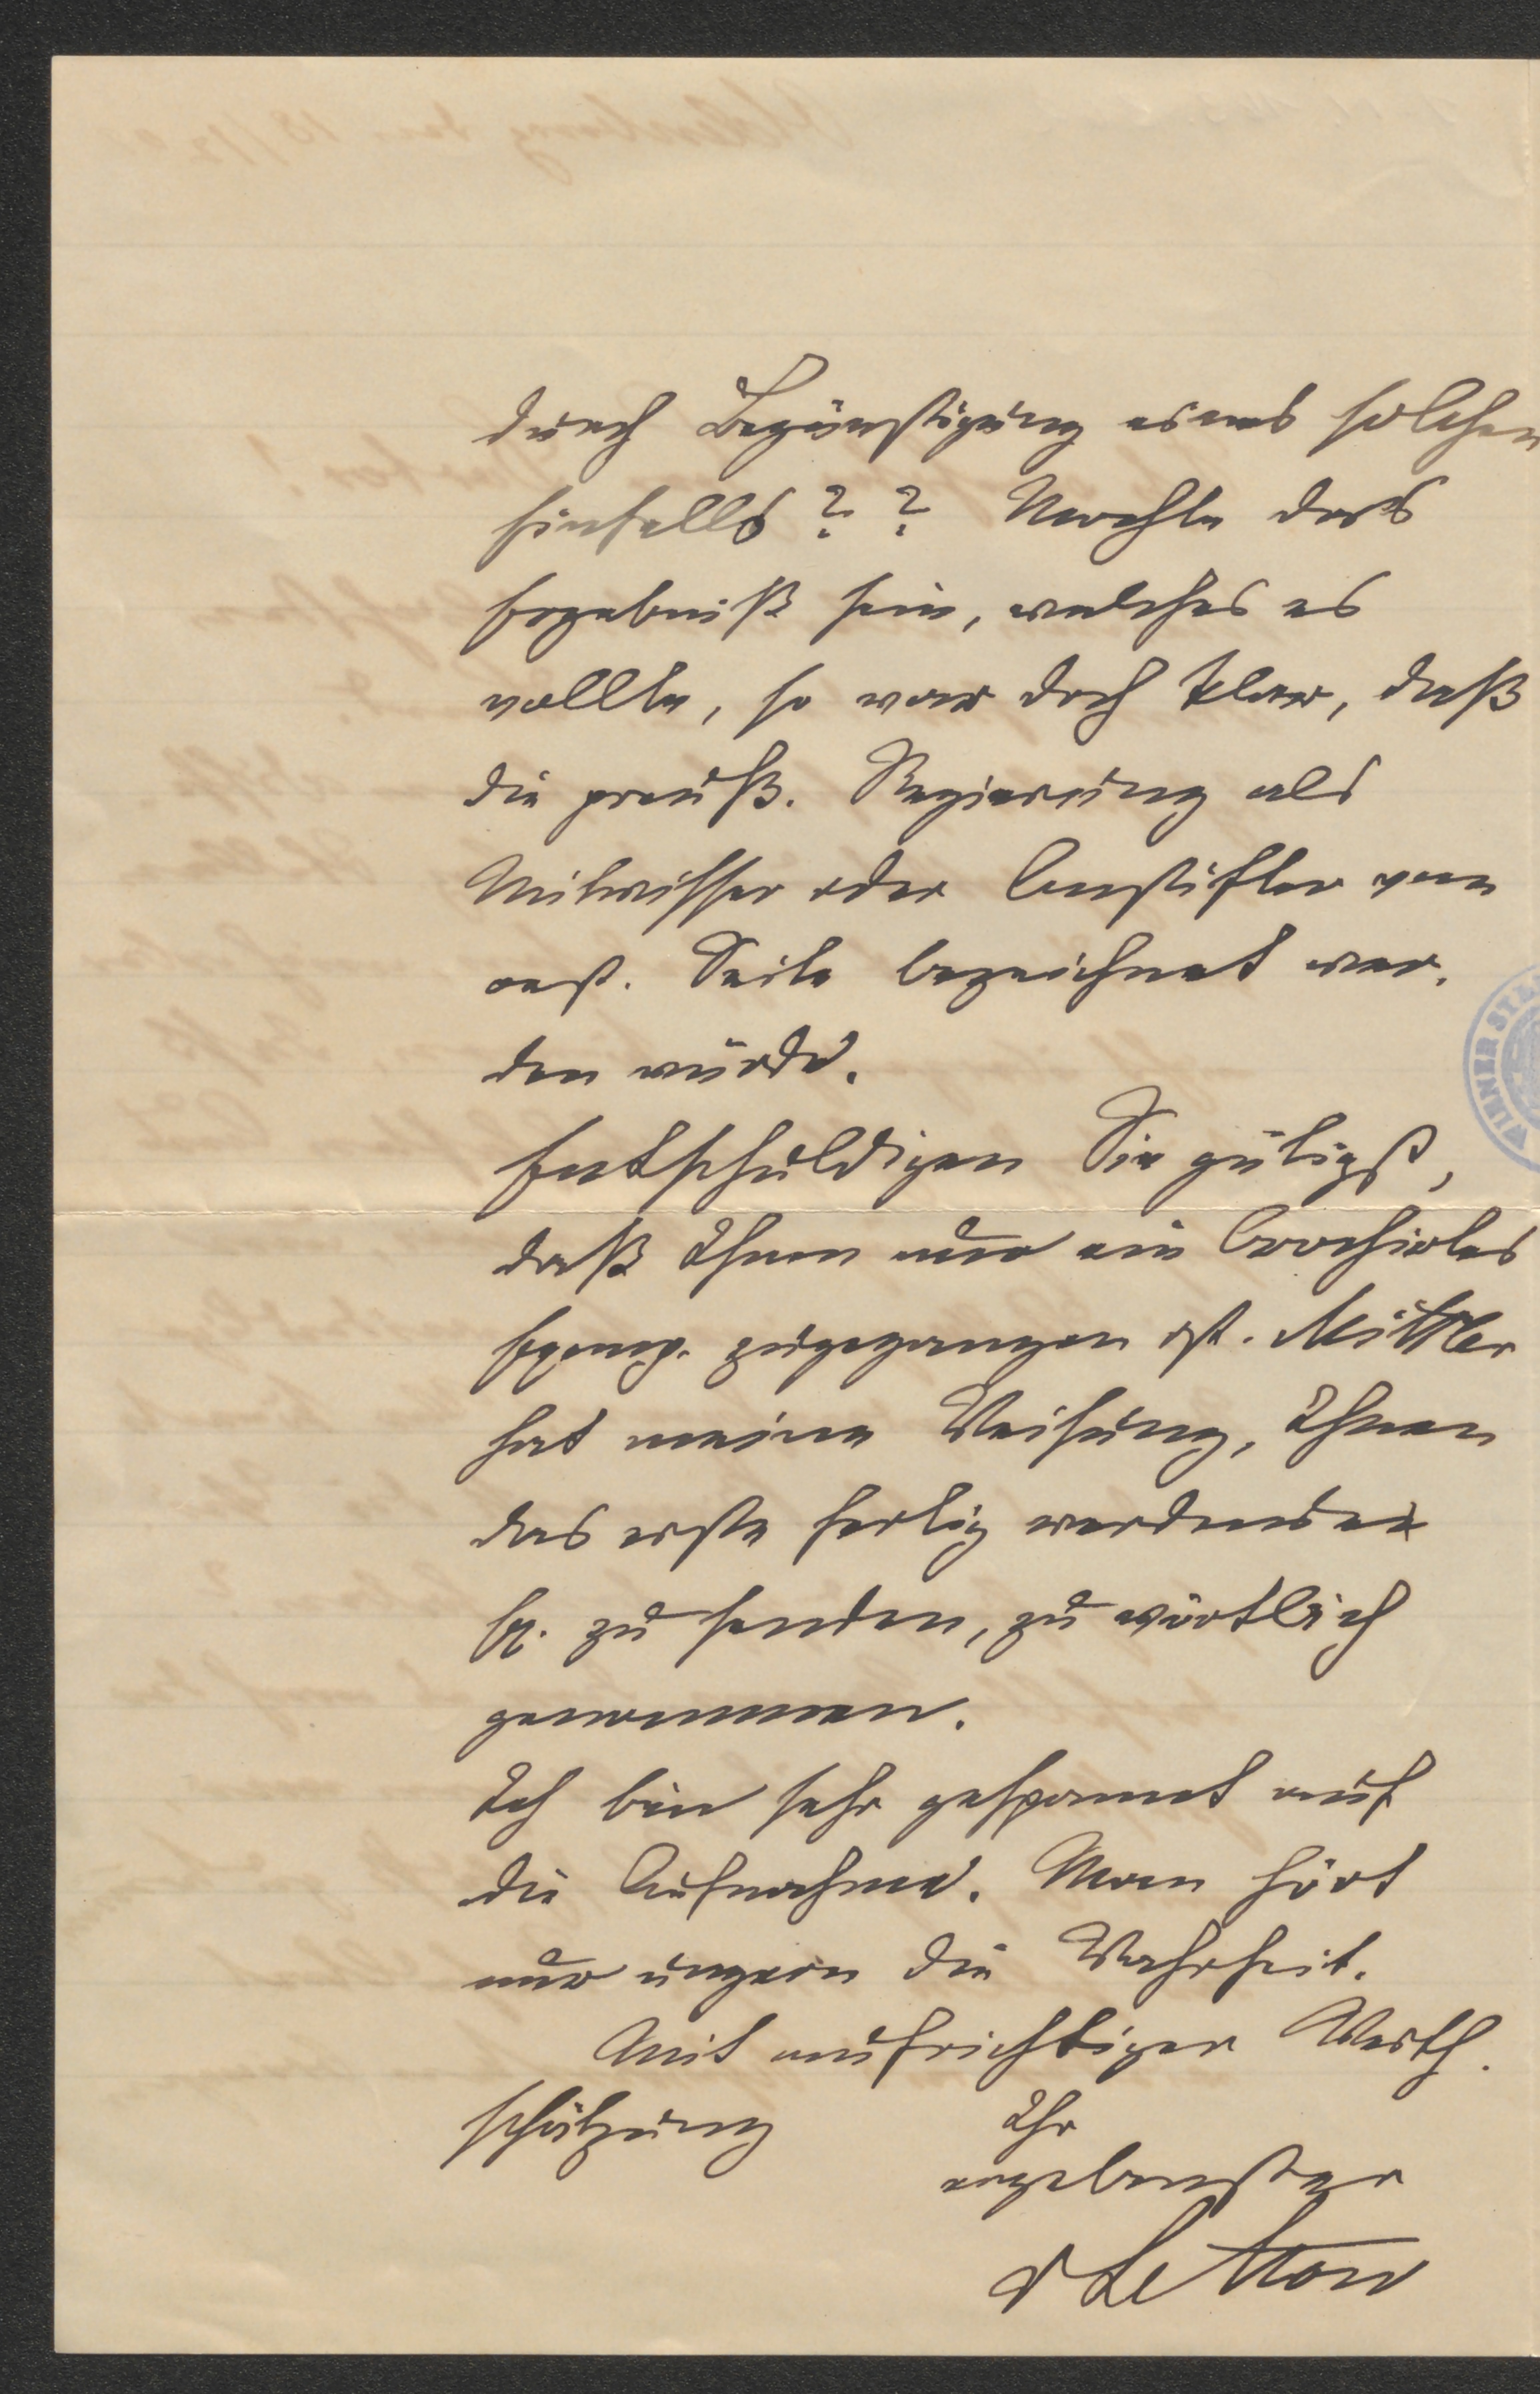 durch Begünstigung eines solchen
Einfalls?? Mochte das
Ergebniß sein, welches es
wollte, so war doch klar, daß
die preuß. Regierung als
Mitwisser oder Anstifter von
oest. Seite bezeichnet wer-
den würde.
Entschuldigen Sie gütigst,
daß Ihnen nur ein broschirtes
Exempl. zugegangen ist. Mittler
hat meine Weisung, Ihnen
das erste fertig werdende
Ex. zu senden, zu wörtlich
genommen.
Ich bin sehr gespannt auf
die Aufnahme. Man hört
nur ungern die Wahrheit.
Mit aufrichtiger Werth-
schätzung Ihr
ergebenster
v Lettow
WIENER